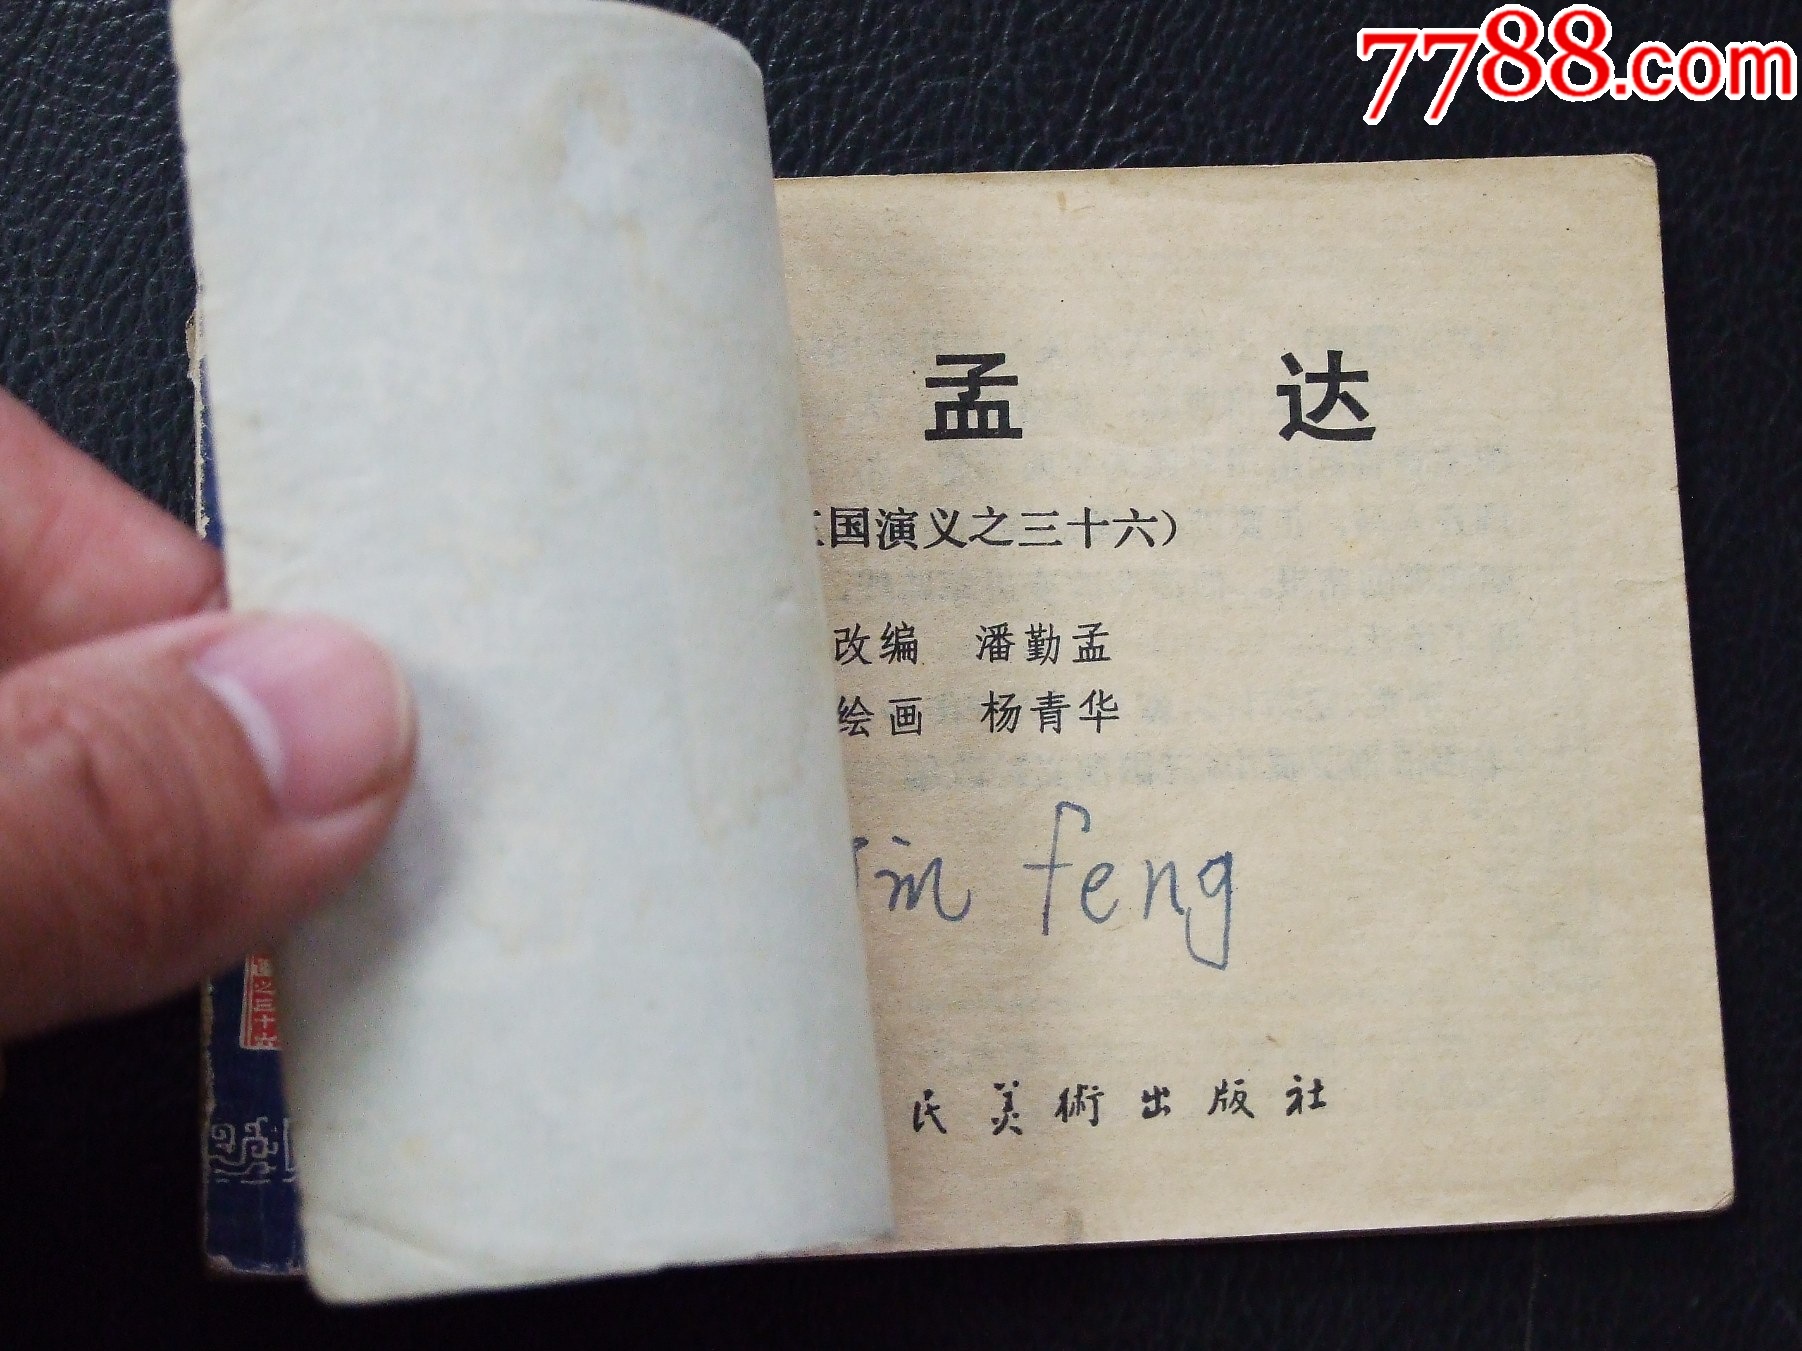 7788.com
孟达
国演义之三十六）
改编 潘勤孟
绘画 杨青华
in feng
民美術出版社
之三十六